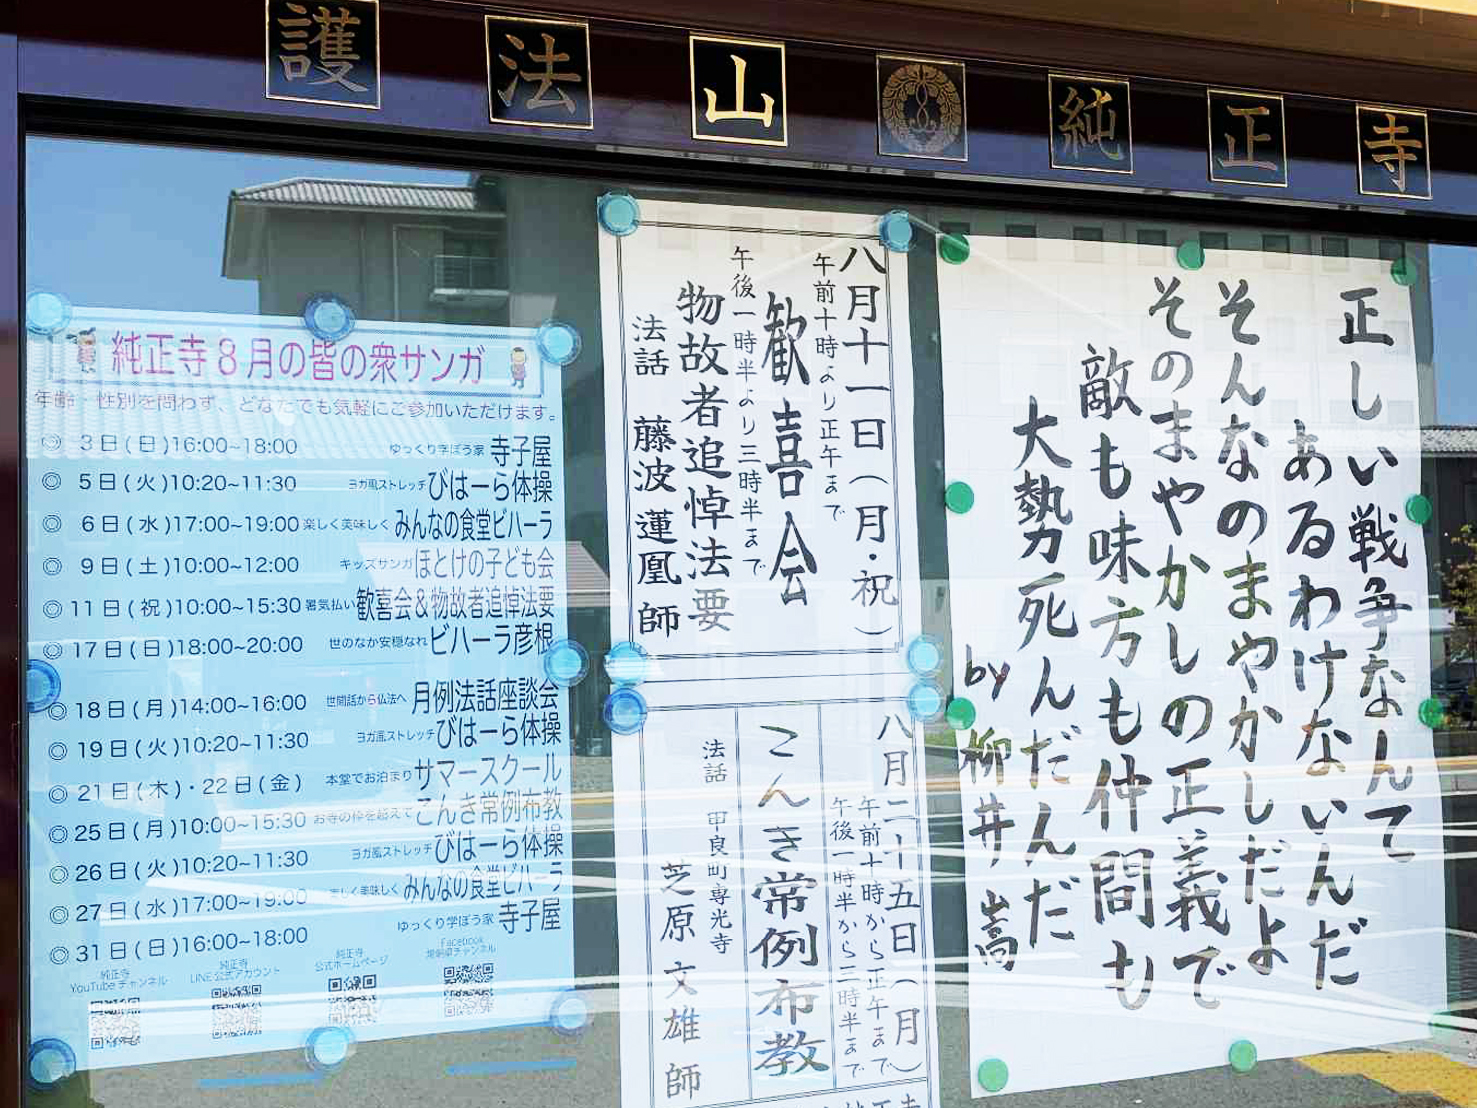 護法山 純正寺
正しい戦争なんて
あるわけないんだ
そんなのまやかしだよ
そのまやかしの正義で
敵も味方も仲間も
大勢死んだんだ
by 柳井嵩
八月十一日(月・祝)
午前十時より正午まで
歓喜会
午後一時半より三時半まで
物故者追悼法要
法話 藤波蓮凰師
八月二十五日(月)
午前十時から正午まで
午後一時半から三時半まで
こんき常例布教
法話 甲良町専光寺
芝原文雄師
純正寺8月の皆の衆サンガ
年齢・性別を問わず、どなたでも気軽にご参加いただけます。
◎ 3日(日)16:00~18:00 ゆっくり学ぼう家 寺子屋
◎ 5日(火)10:20~11:30 ヨガ風ストレッチ びはーら体操
◎ 6日(水)17:00~19:00 楽しく美味しく みんなの食堂ビハーラ
◎ 9日(土)10:00~12:00 キッズサンガ ほとけの子ども会
◎ 11日(祝)10:00~15:30 暑気払い 歓喜会&物故者追悼法要
◎ 17日(日)18:00~20:00 世のなか安穏なれ ビハーラ彦根
◎ 18日(月)14:00~16:00 世間話から仏法へ 月例法話座談会
◎ 19日(火)10:20~11:30 ヨガ風ストレッチ びはーら体操
◎ 21日(木)・22日(金) 本堂でお泊まり サマースクール
◎ 25日(月)10:00~15:30 お寺の枠を超えて こんき常例布教
◎ 26日(火)10:20~11:30 ヨガ風ストレッチ びはーら体操
◎ 27日(水)17:00~19:00 楽しく美味しく みんなの食堂ビハーラ
◎ 31日(日)16:00~18:00 ゆっくり学ぼう家 寺子屋
純正寺
YouTubeチャンネル
純正寺
LINE公式アカウント
純正寺
公式ホームページ
Facebook